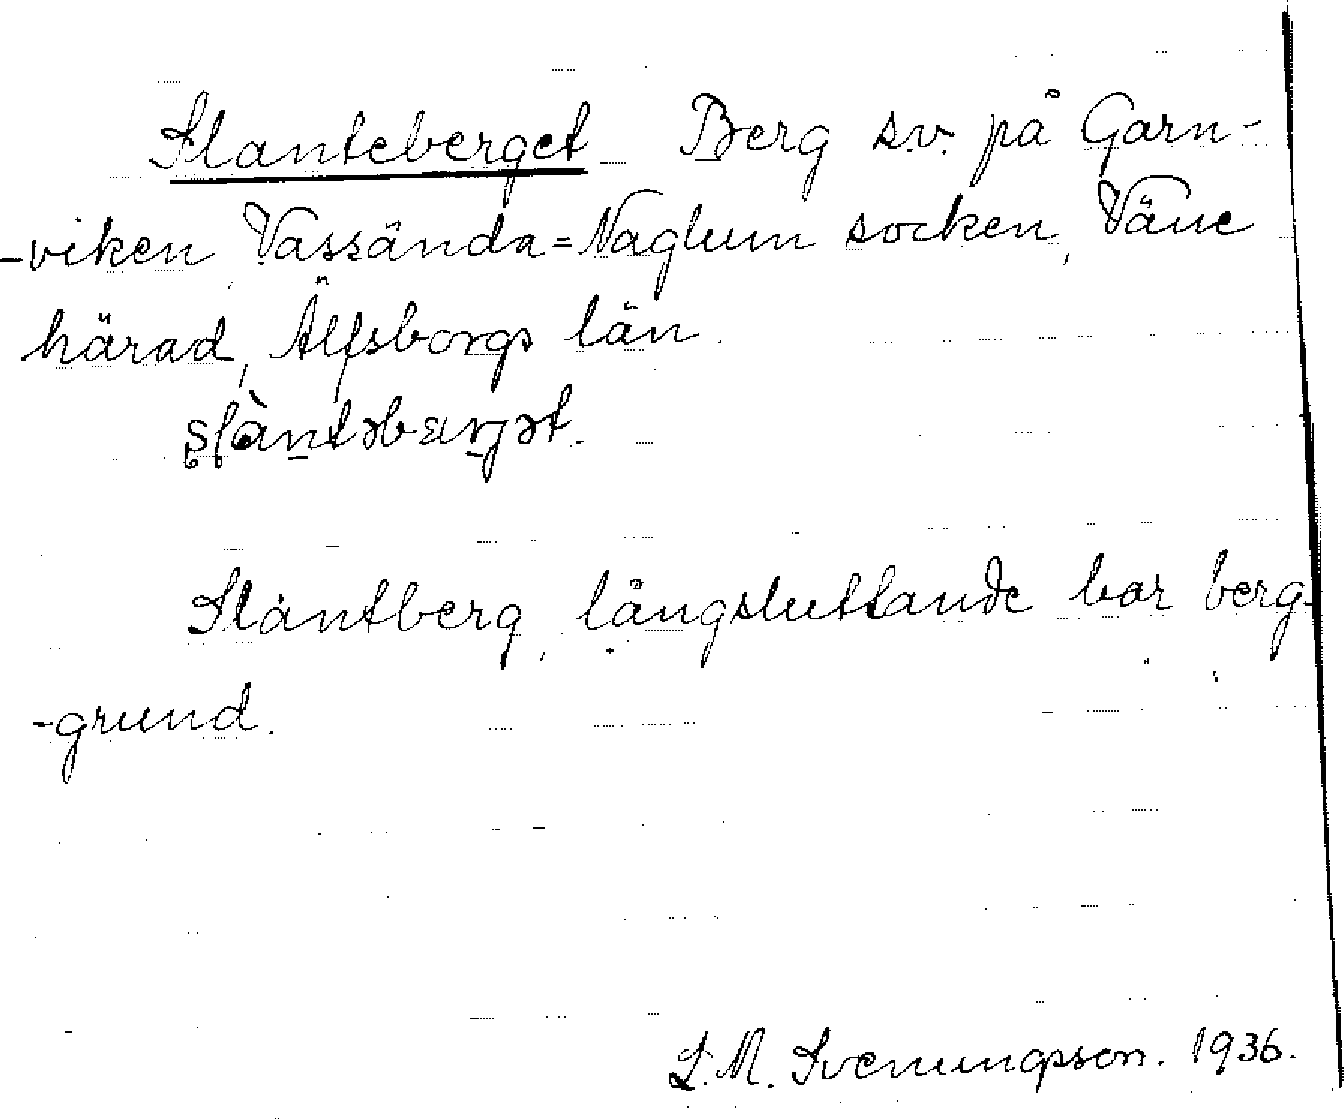 Slanteberget Berg sv. på Garn-
-viken, Vassända=Naglum socken, Väne
härad, Älfsborgs län.
s̥l̥àntəbærjət.
Slàntberg, långsluttande bar berg-
-grund.
L. M. Svenungsson. 1936.